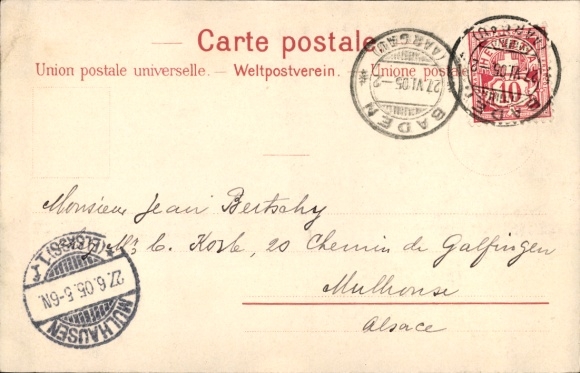 Carte postale.
Union postale universelle. – Weltpostverein. – Unione postale
BADEN
(AARGAU)
27.VI.05.–
HELVETIA
10
Monsieur Jean Bertschy
c/o Mr C. Korb, 20 Chemin de Galfingen
Mulhouse
Alsace
MÜLHAUSEN
27.6.05.5-6N.
* (ELSASS) 1 r